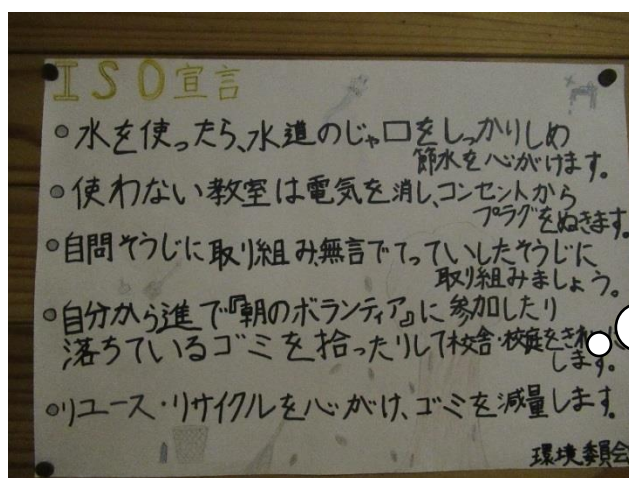 ISO宣言
●水を使ったら、水道のじゃ口をしっかりしめ
節水を心がけます。
●使わない教室は電気を消し、コンセントから
プラグをぬきます。
●自問そうじに取り組み、無言でてっていしたそうじに
取り組みましょう。
●自分から進で『朝のボランティア』に参加したり
落ちているゴミを拾ったりして校舎・校庭をきれいに
します。
●リユース・リサイクルを心がけ、ゴミを減量します。
環境委員会